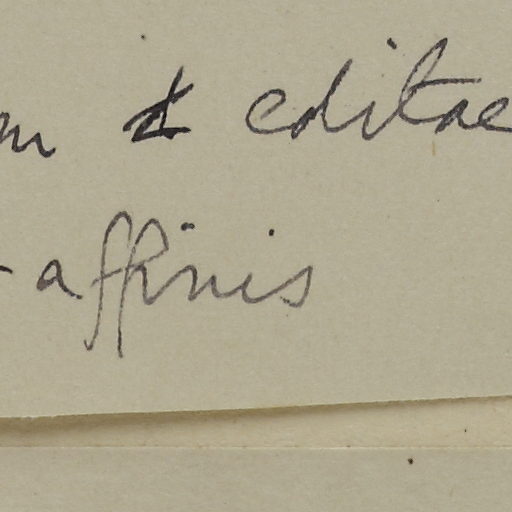 m & editae
- affinis